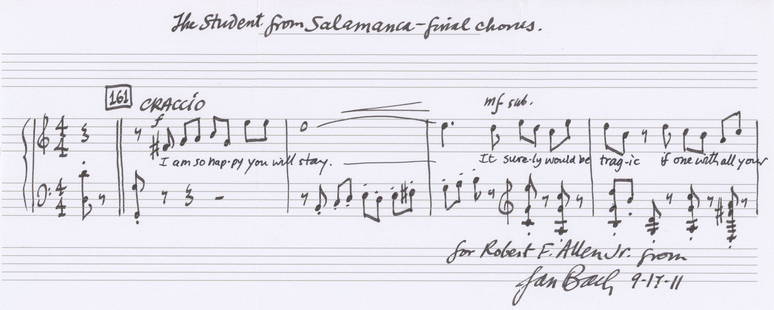 The Student from Salamanca - final chorus.
161
CRACCIO
f
mf sub.
4 4
I am so hap-py you will stay.
It sure-ly would be trag-ic if one with all your
4 4
for Robert F. Allen Jr. from
Jan Bach 9-17-11